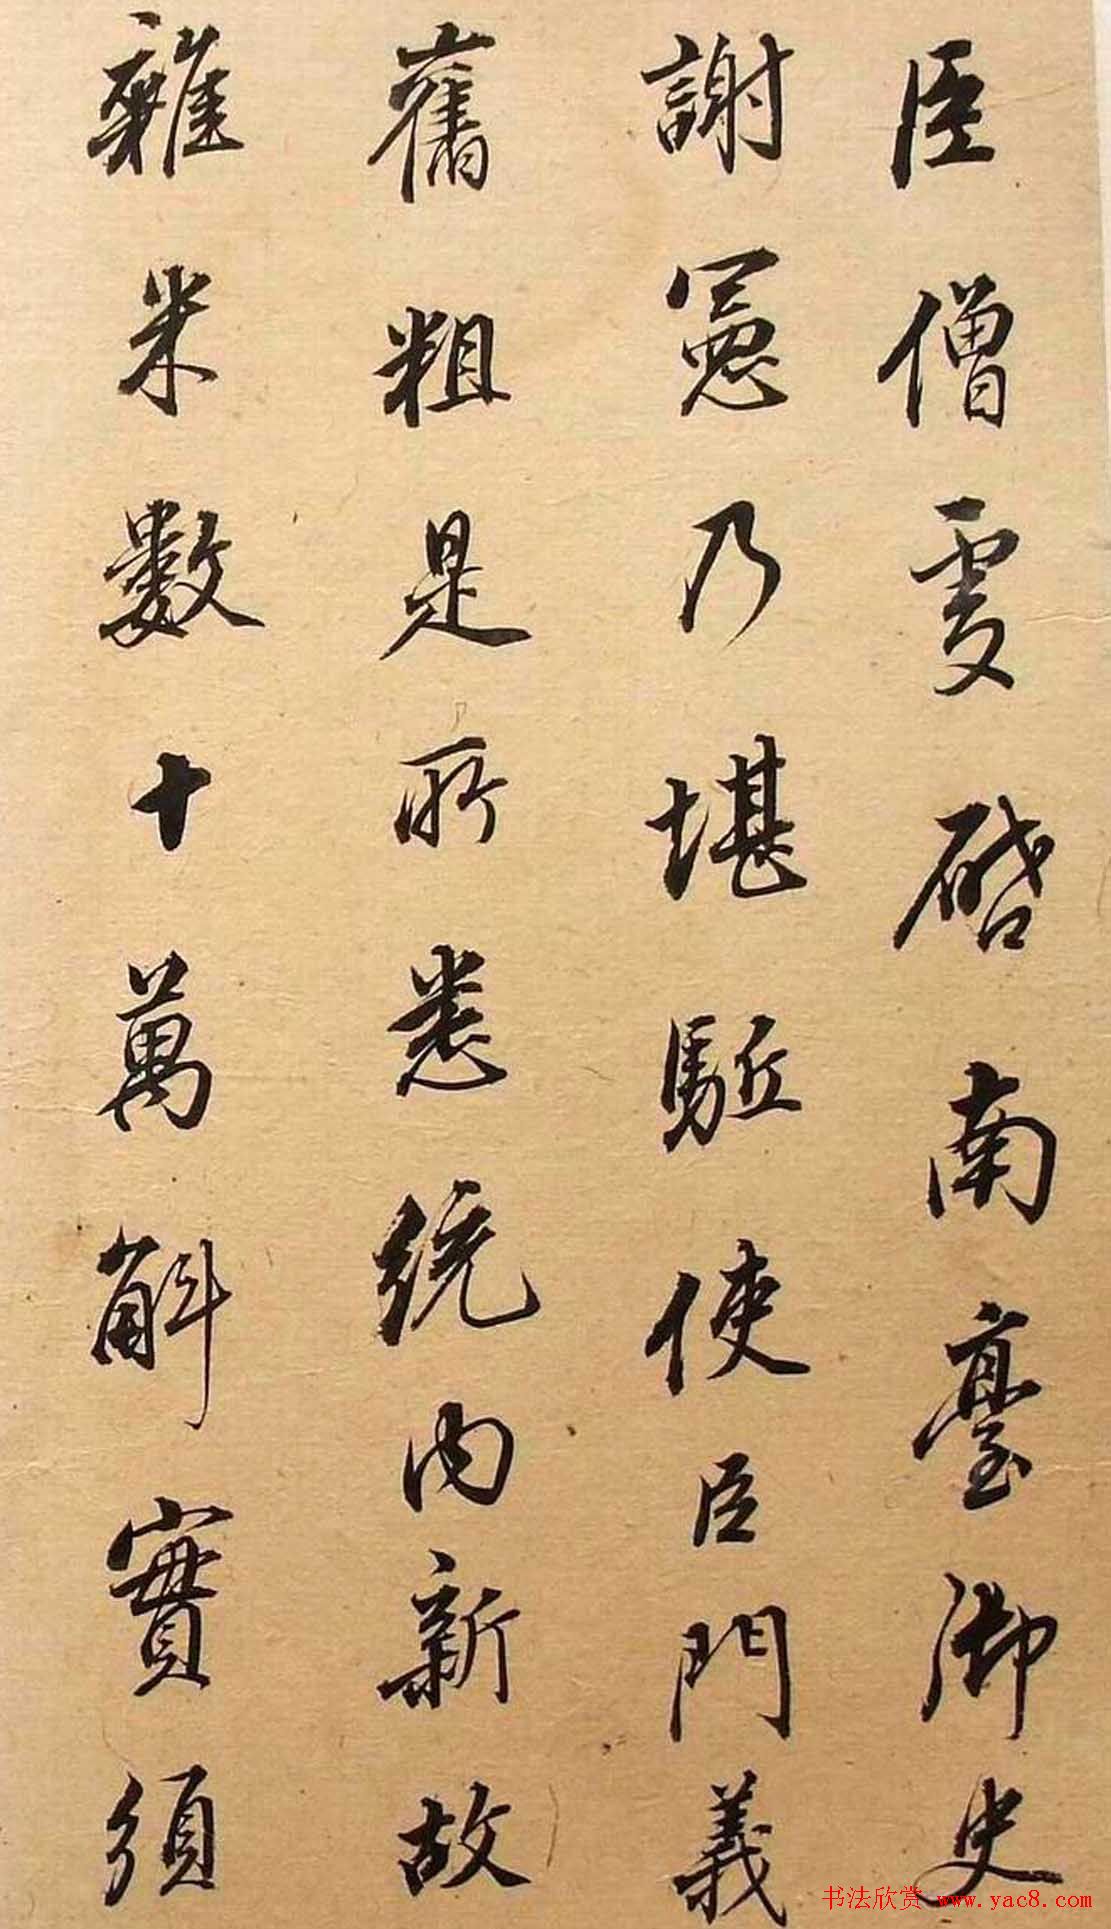 臣僧虔啓南臺御史
謝憲乃堪驅使臣門義
舊粗是所悉統內新故
雜米數十萬斛實須
书法欣赏 www.yac8.com